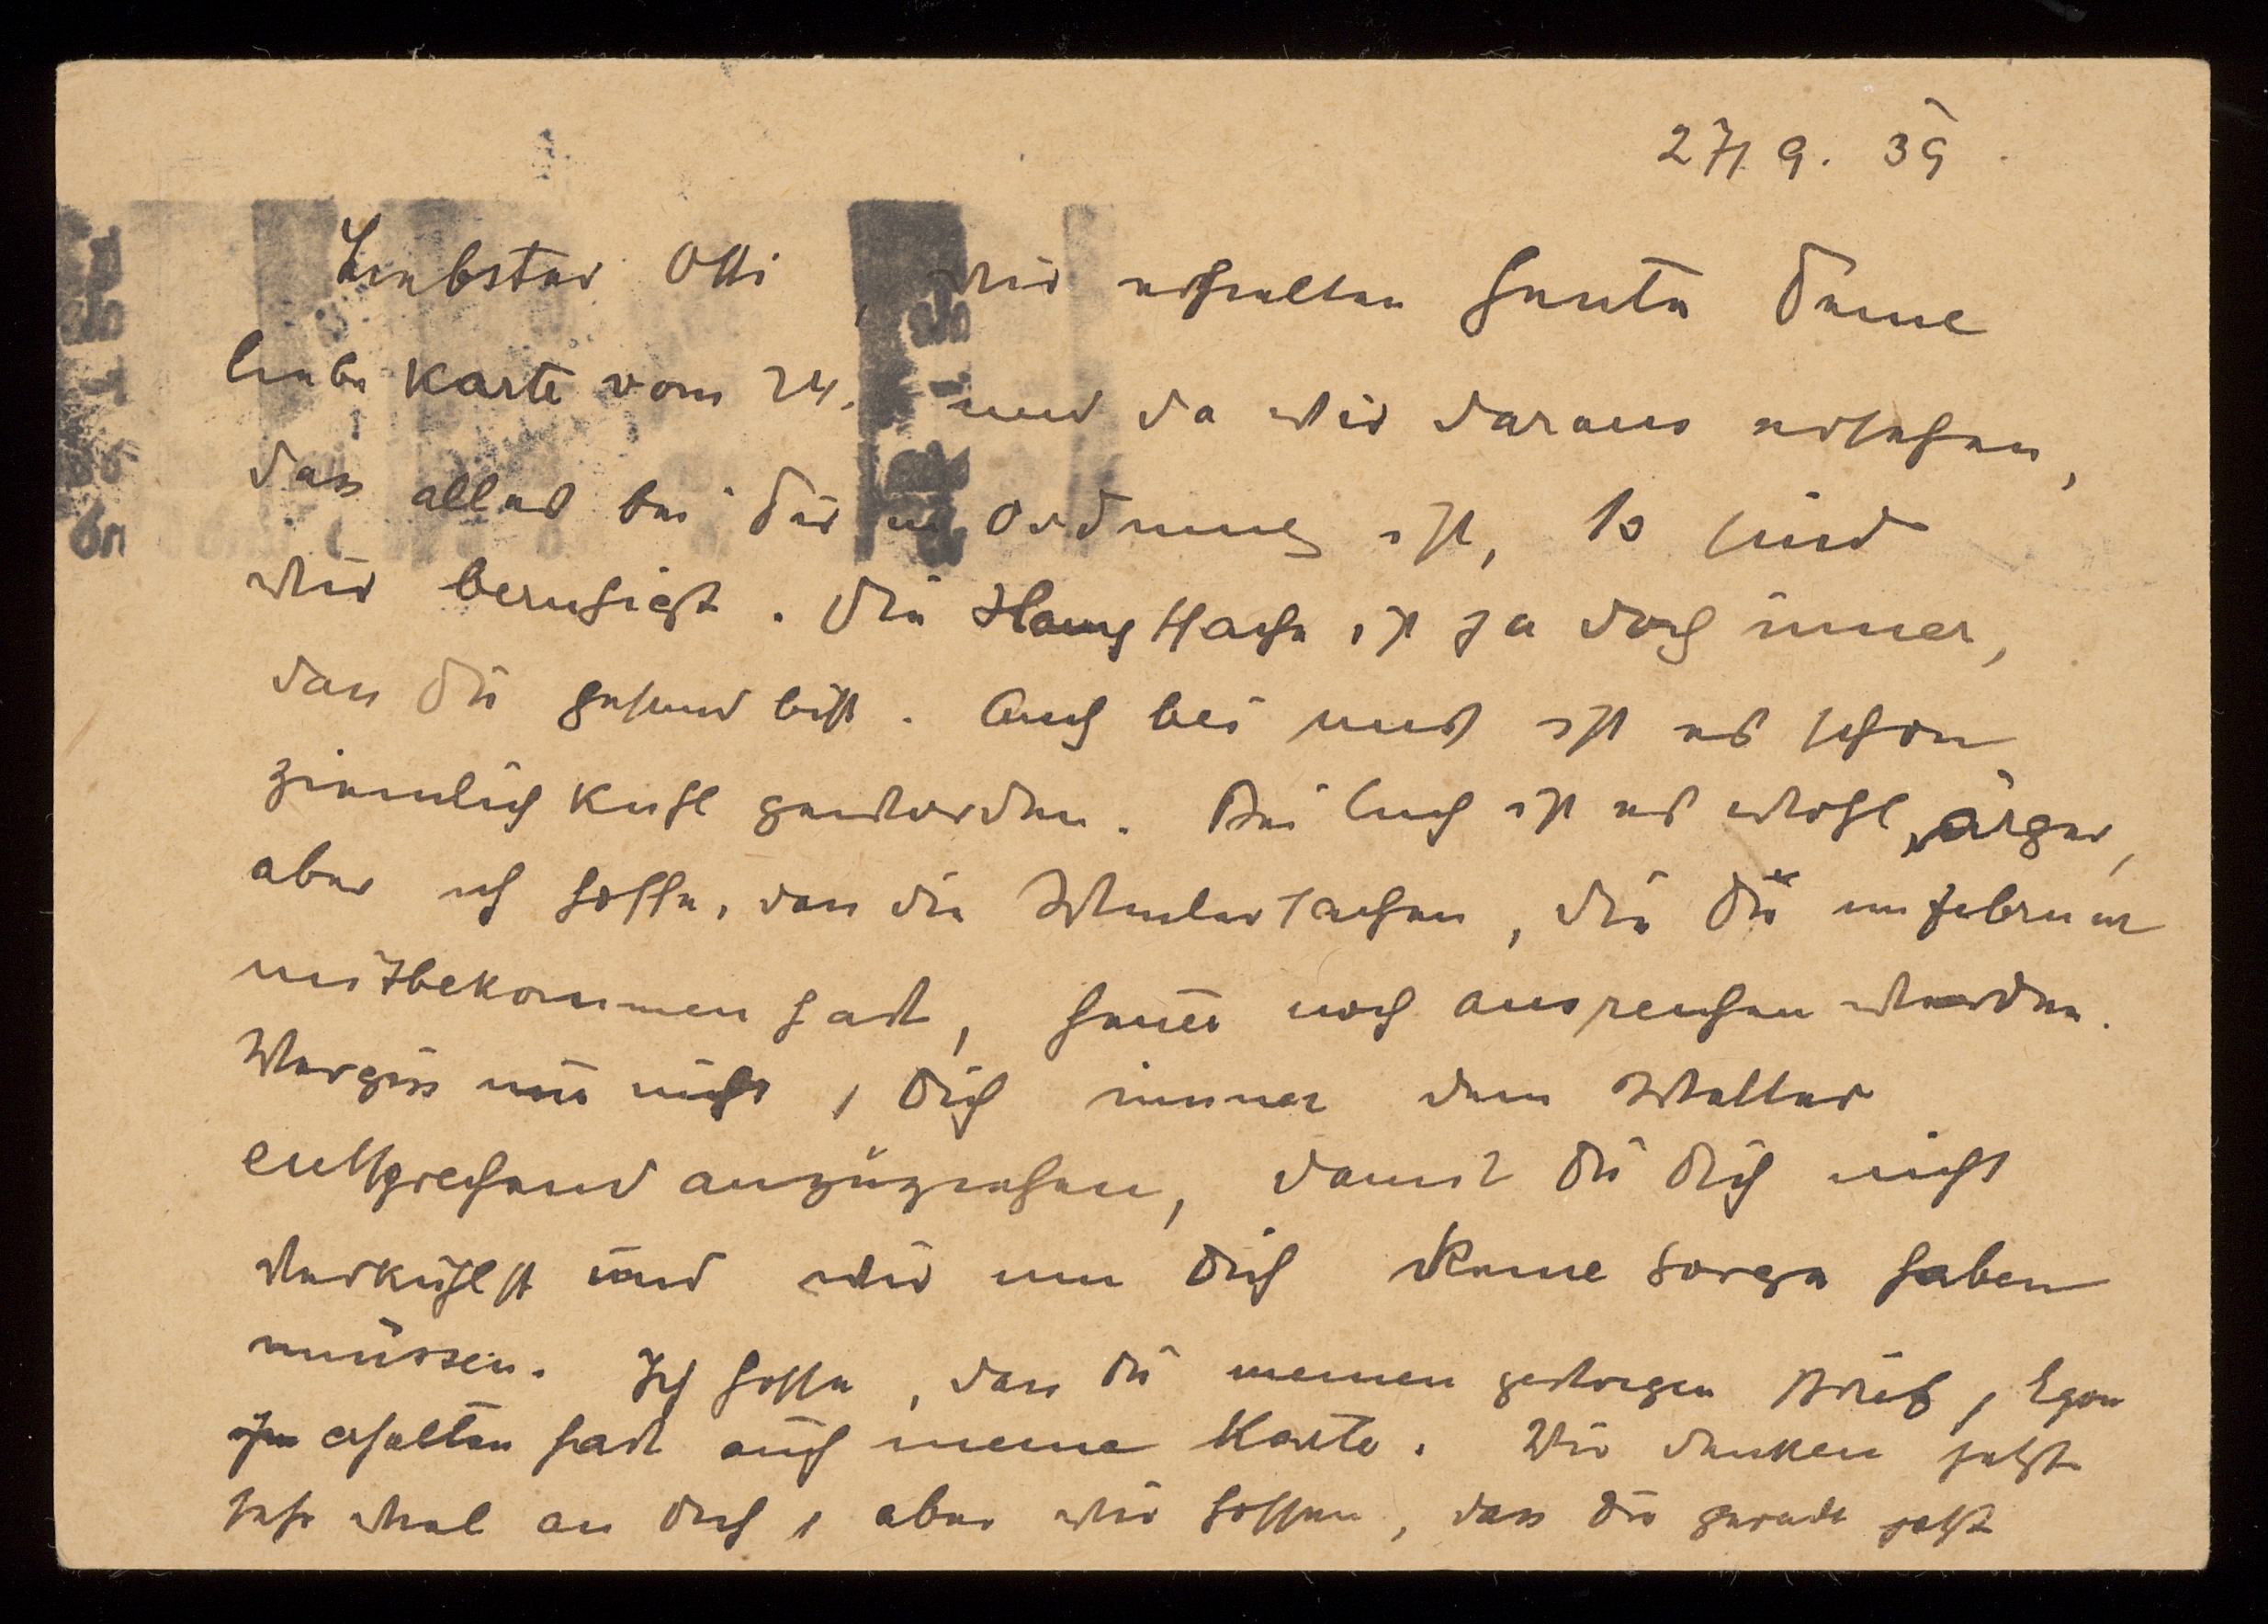 27/9. 39
Liebster Otti, wir erhielten heute Deine
liebe Karte vom 24. und da wir daraus ersehen,
dass alles bei Dir in Ordnung ist, so sind
wir beruhigt. Die Hauptsache ist ja doch immer,
dass Du gesund bist. Auch bei uns ist es schon
ziemlich kühl geworden. Bei Euch ist es wohl ärger,
aber ich hoffe, dass die Wintersachen, die Du im Februar
mitbekommen hast, heuer noch ausreichen werden.
Vergiss nur nicht, Dich immer dem Wetter
entsprechend anzuziehen, damit Du Dich nicht
verkühlst und wir um Dich keine Sorge haben
müssen. Ich hoffe, dass Du meinen gestrigen Brief, Egon
erhalten hast auch meine Karte. Wir denken jetzt
sehr viel an Dich, aber wir hoffen, dass Du gerade jetzt